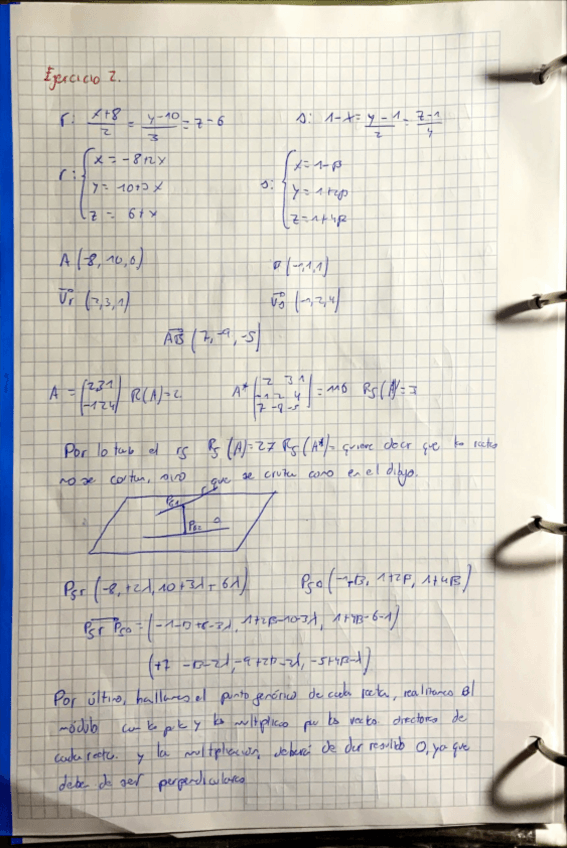 Ejercicio 2.
r: x+8/2 = y-10/3 = z-6    s: 1-x = y-1/2 = z-1/4
r: { x = -8+2λ    s: { x = 1-β
y = 10+3λ    y = 1+2β
z = 6+λ    z = 1+4β
A (-8, 10, 6)    B (-1,1,1)
Vr (2,3,1)    Vs (-1,2,4)
AB (7, -9, -5)
A = (2 3 1 / -1 2 4) R(A)=2    A* | 2 3 1 / -1 2 4 / 7 -9 -5 | = 116 Rg(A*)=3
Por lo tanto el rg Rg(A)=2≠Rg(A*)= quiere decir que las rectas
no se cortan, sino que se cruzan como en el dibujo.
r
Pgr
Pgs s
Pgr (-8,+2λ, 10+3λ, 6λ)    Pgs (-1-β, 1+2β, 1+4β)
Pgr Pgs = (-1-β+8-2λ, 1+2β-10-3λ, 1+4β-6-λ)
(+7 -β-2λ, -9+2β-3λ, -5+4β-λ)
Por último, hallamos el punto genérico de cada recta, realizamos el
módulo y lo multiplico por los vectores directores de
cada recta. y la multiplicación, deberá de dar resultado 0, ya que
deben de ser perpendiculares